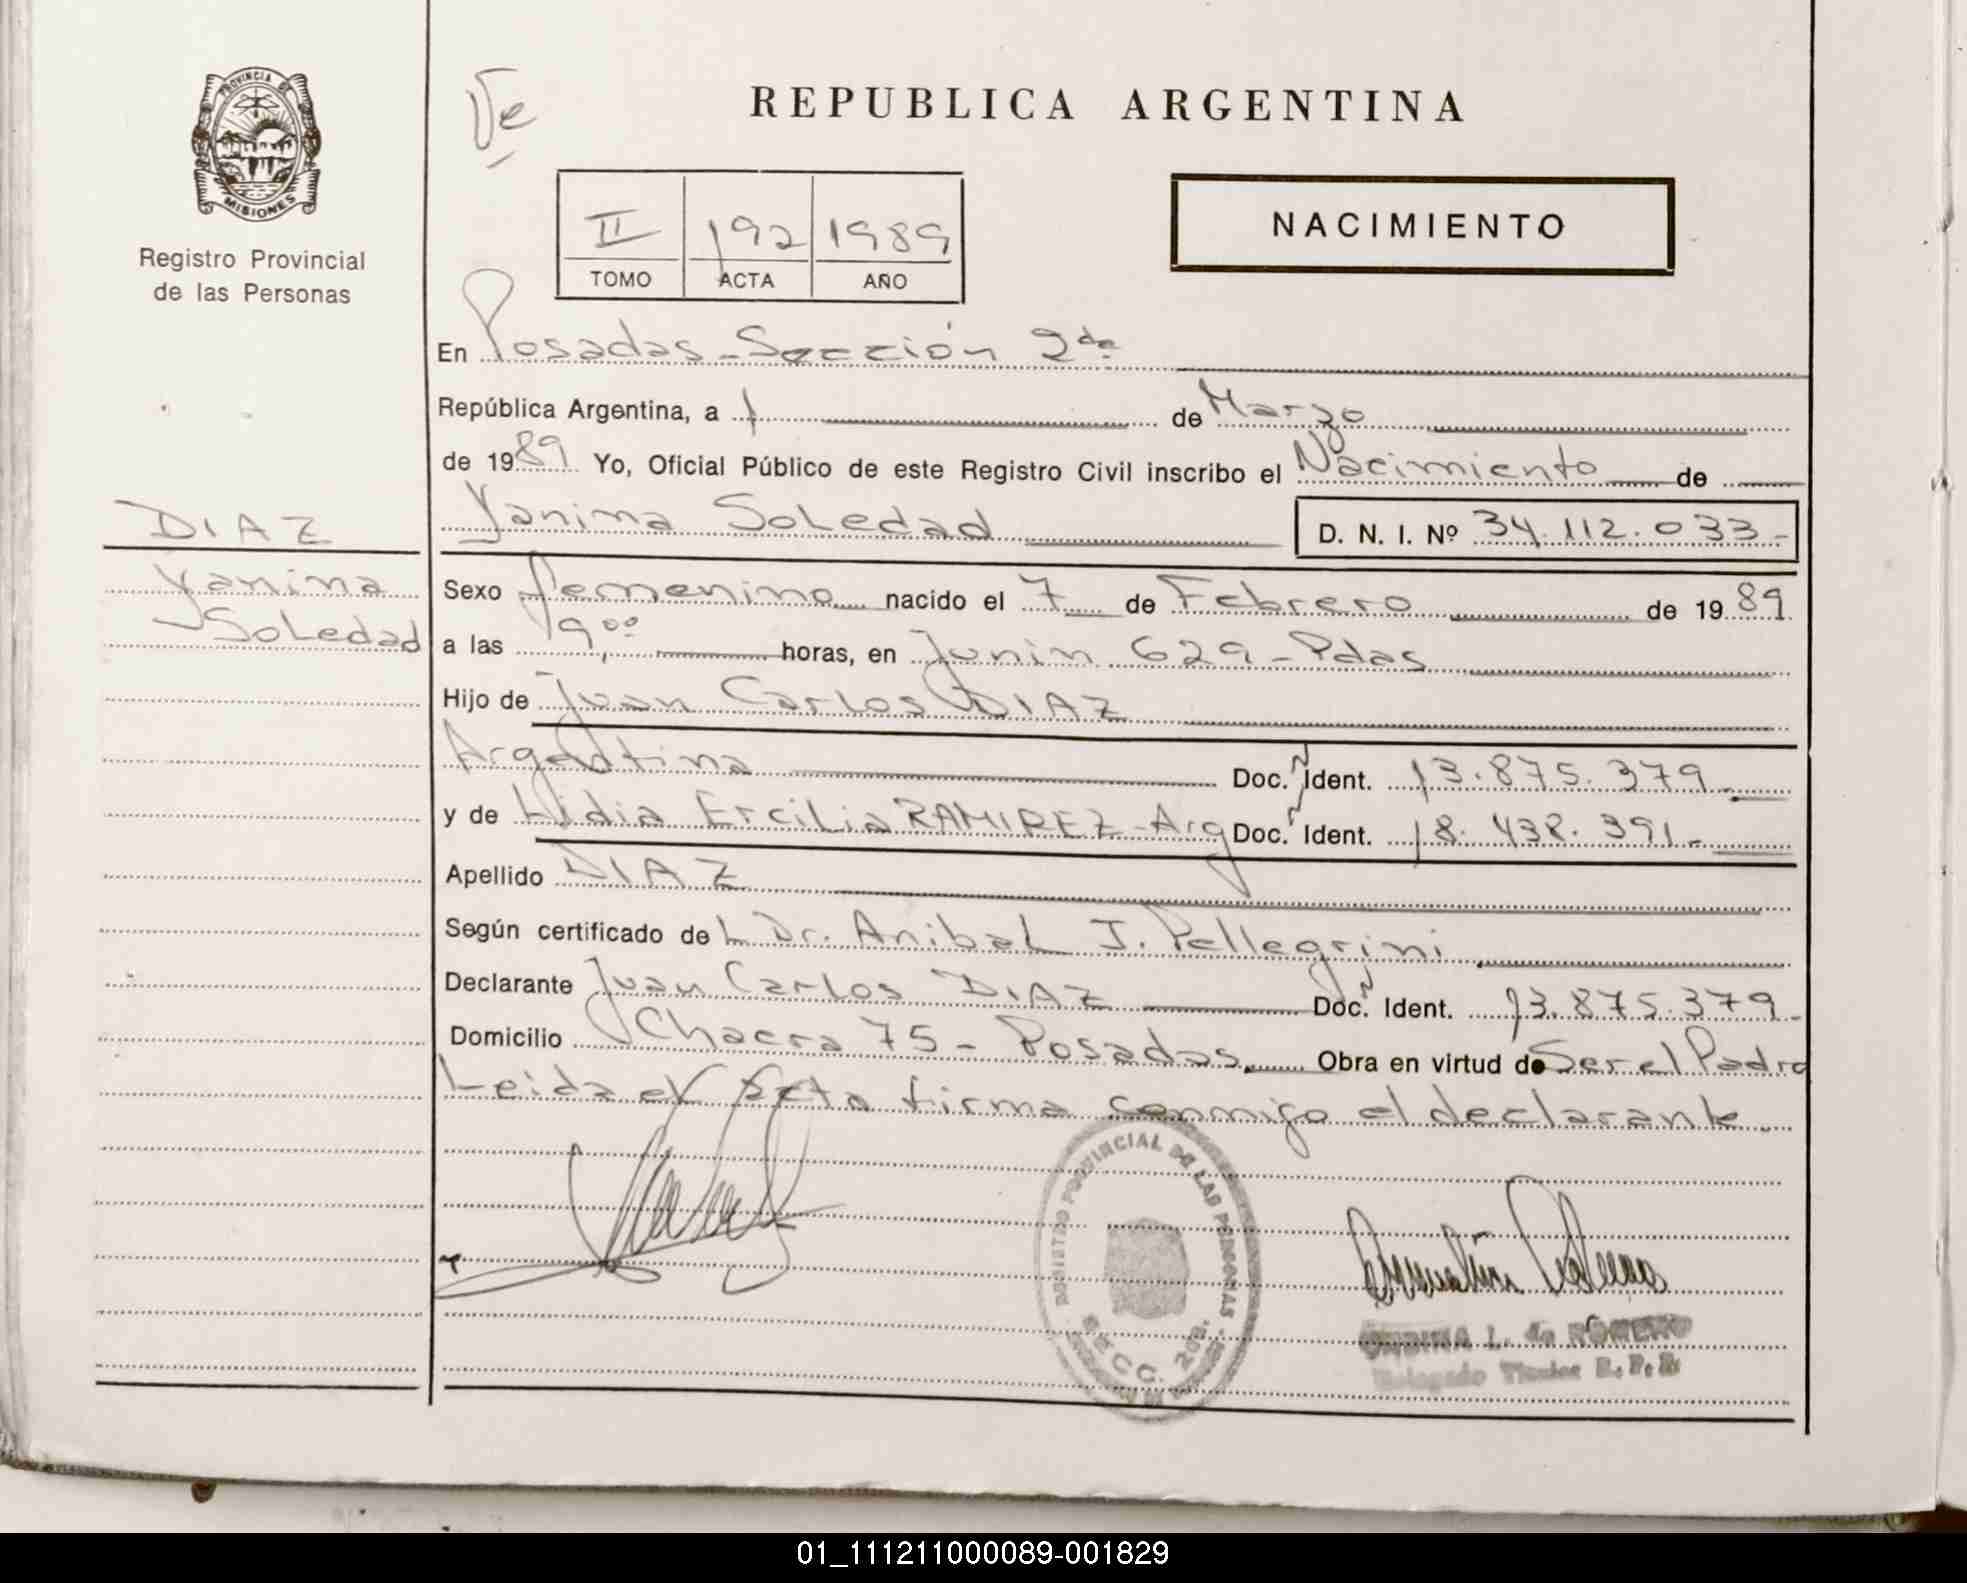 PROVINCIA DE
MISIONES
Registro Provincial
de las Personas
DIAZ
Yanina
Soledad
Ve
REPUBLICA ARGENTINA
II 192 1989
TOMO ACTA AÑO
NACIMIENTO
En Posadas - Sección 2da
República Argentina, a 1 de Marzo
de 1989 Yo, Oficial Público de este Registro Civil inscribo el Nacimiento de
Yanina Soledad D. N. I. Nº 34.112.033-
Sexo femenino nacido el 7 de Febrero de 1989
a las 9,00 horas, en Junin 629 - Pdas
Hijo de Juan Carlos DIAZ
Argentina Doc. Ident. 13.875.379
y de Lidia Ercilia RAMIREZ - Arg Doc. Ident. 18.438.391-
Apellido DIAZ
Según certificado del Dr. Anibal J. Pellegrini
Declarante Juan Carlos DIAZ Doc. Ident. 13.875.379-
Domicilio Chacra 75 - Posadas Obra en virtud de Ser el Padre
Leida el Acta firma conmigo el declarante.
REGISTRO PROVINCIAL DE LAS PERSONAS
SECC. 2da.
L. de ROMERO
01_111211000089-001829